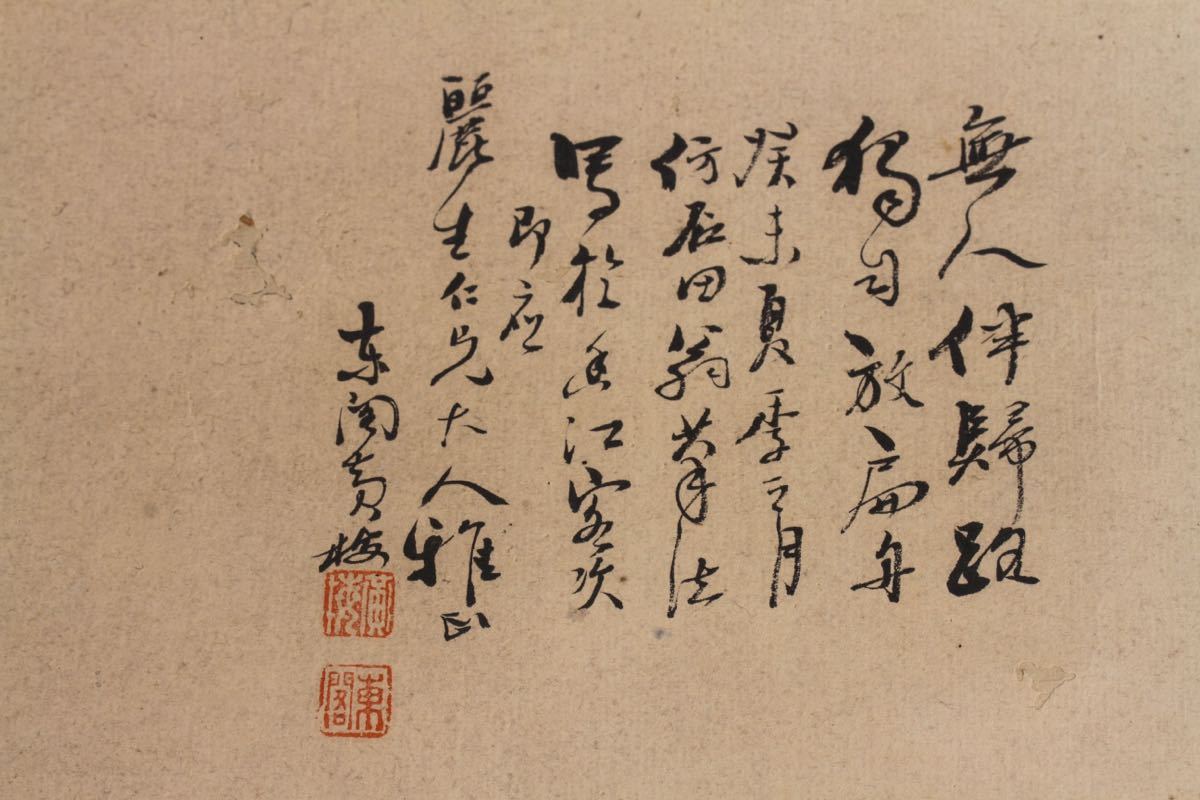 無人伴歸路
獨自放扁舟
癸未夏季之月
仿石田翁筆法
寫於香江客次
即應
麗生仁兄大人雅正
東閣黃梅
黃梅
東閣